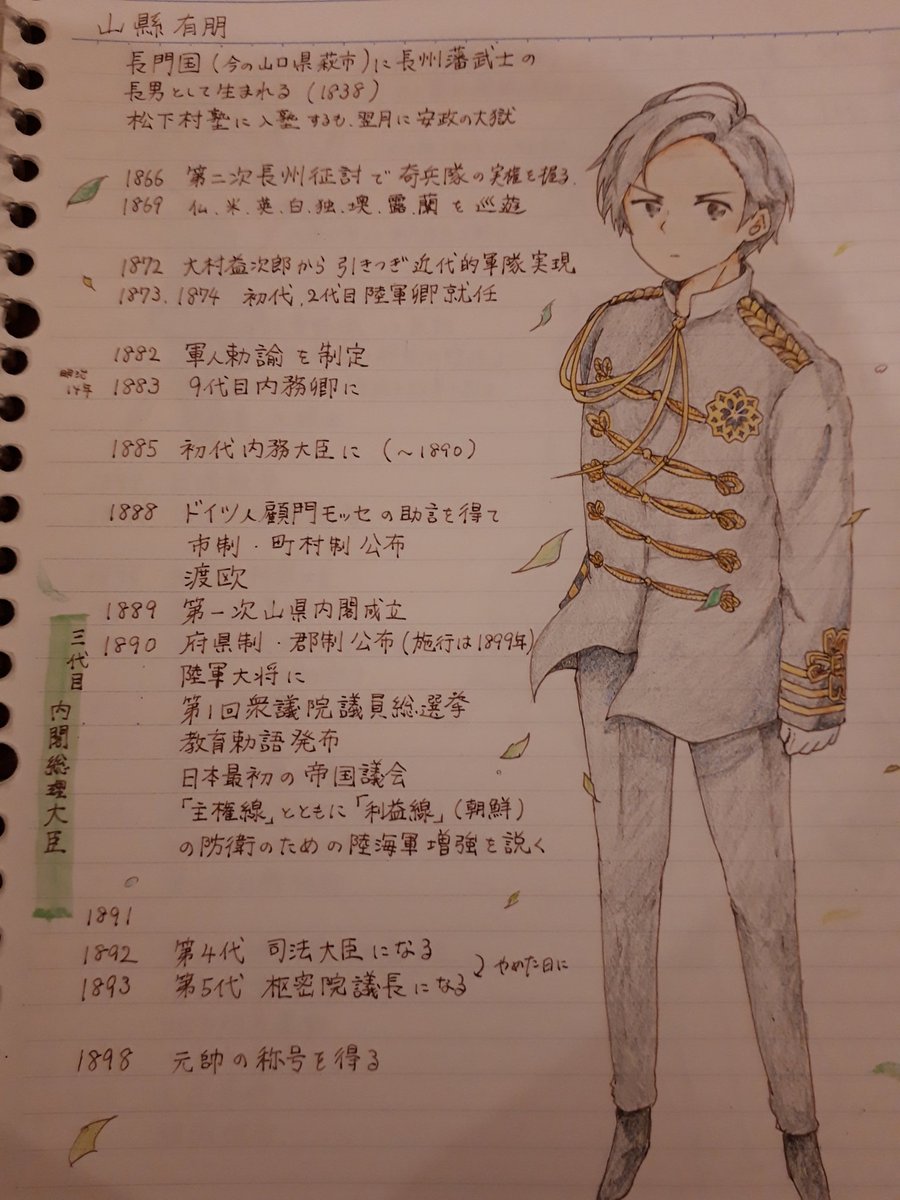 山縣有朋
長門国(今の山口県萩市)に長州藩武士の
長男として生まれる (1838)
松下村塾に入塾するも、翌月に安政の大獄
1866 第二次長州征討で奇兵隊の実権を握る.
1869 仏、米、英、白、独、墺、露、蘭を巡遊
1872 大村益次郎から引きつぎ近代的軍隊実現
1873、1874 初代、2代目陸軍卿就任
1882 軍人勅諭を制定
明治14年 1883 9代目内務卿に
1885 初代内務大臣に (〜1890)
1888 ドイツ人顧問モッセの助言を得て
市制・町村制公布
渡欧
1889 第一次山県内閣成立
三代目 内閣総理大臣
1890 府県制・郡制公布(施行は1899年)
陸軍大将に
第1回衆議院議員総選挙
教育勅語発布
日本最初の帝国議会
「主権線」とともに「利益線」(朝鮮)
の防衛のための陸海軍増強を説く
1891
1892 第4代 司法大臣になる
1893 第5代 枢密院議長になる
やめた日に
1898 元帥の称号を得る